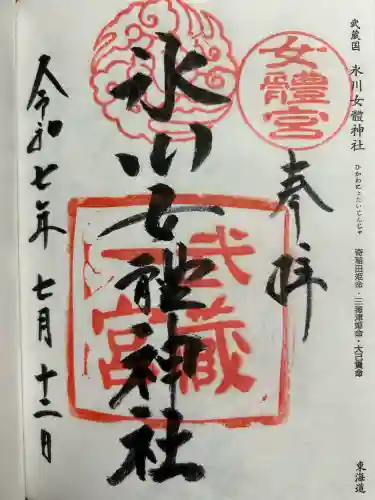 武蔵国 氷川女體神社
ひかわにょたいじんじゃ
奇稲田姫命・三穂津姫命・大己貴命
東海道
女體宮
奉拝
武蔵
一宮
氷川女體神社
令和七年七月十二日